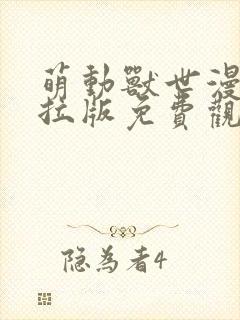 萌動獸世漫
拉版免費觀
隐為者4